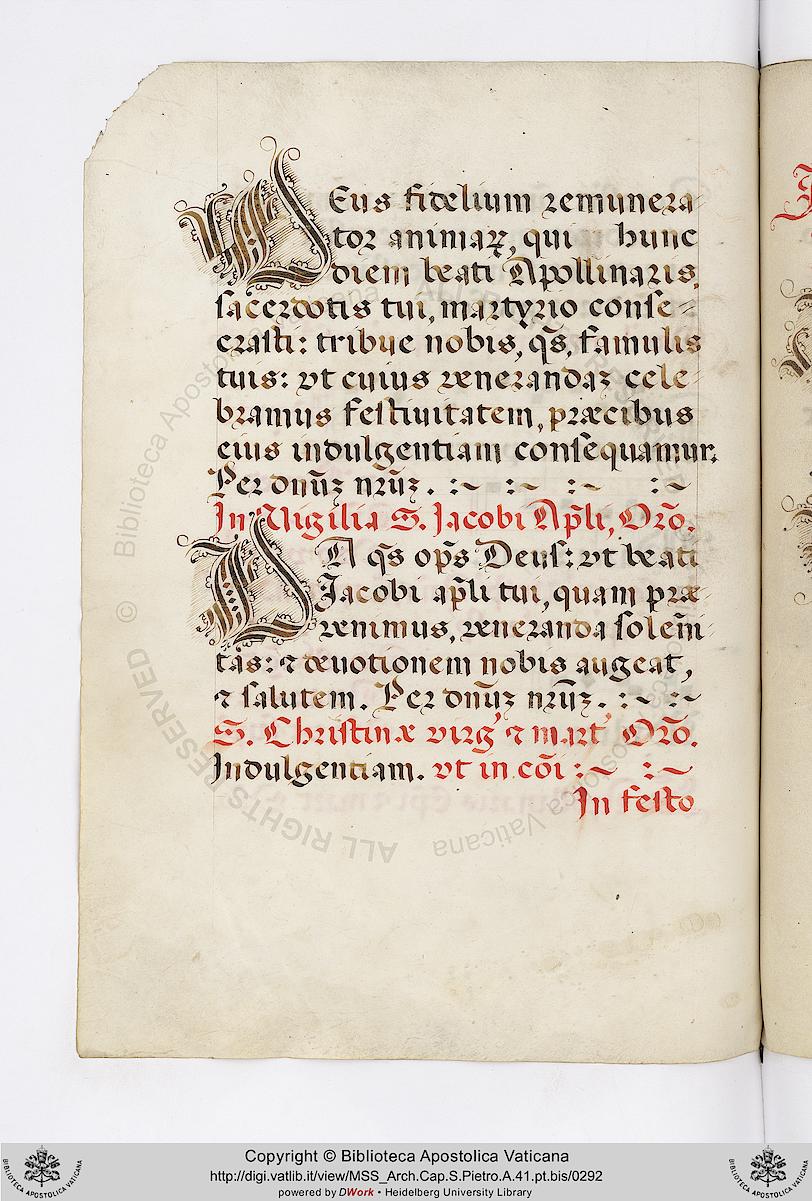 DEus fidelium remunera-
tor animaꝝ, qui hunc
diem beati Apollinaris,
sacerdotis tui, martyrio conse-
crasti: tribue nobis, q̃s, famulis
tuis: vt cuius venerandaʒ cele-
bramus festiuitatem, præcibus
eius indulgentiam consequamur.
Per dnũʒ nr̃ũʒ. :~ :~ :~ :~
In Vigilia S. Jacobi Ap̃li, Orõ.
DA q̃s op̃s Deus: vt beati
Jacobi ap̃li tui, quam præ-
venimus, veneranda solem̃-
tãs: ⁊ deuotionem nobis augeat,
⁊ salutem. Per dnũʒ nr̃ũʒ. :~ :~
S. Christinæ virg' ⁊ mart' Orõ.
Indulgentiam. vt in cõi :~ :~
In festo
Biblioteca Apostolica Vaticana
ALL RIGHTS RESERVED ©
Copyright © Biblioteca Apostolica Vaticana
http://digi.vatlib.it/view/MSS_Arch.Cap.S.Pietro.A.41.pt.bis/0292
powered by DWork • Heidelberg University Library